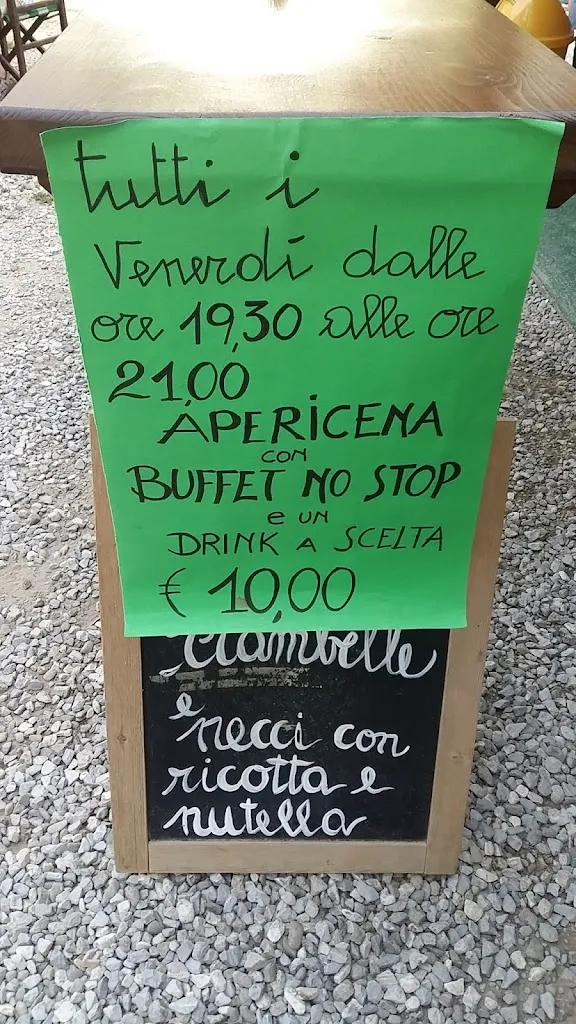 tutti i
Venerdí dalle
ore 19,30 alle ore
21,00
APERICENA
CON
BUFFET NO STOP
e UN
DRINK A SCELTA
€ 10,00
ciambelle
e
necci con
ricotta e
nutella